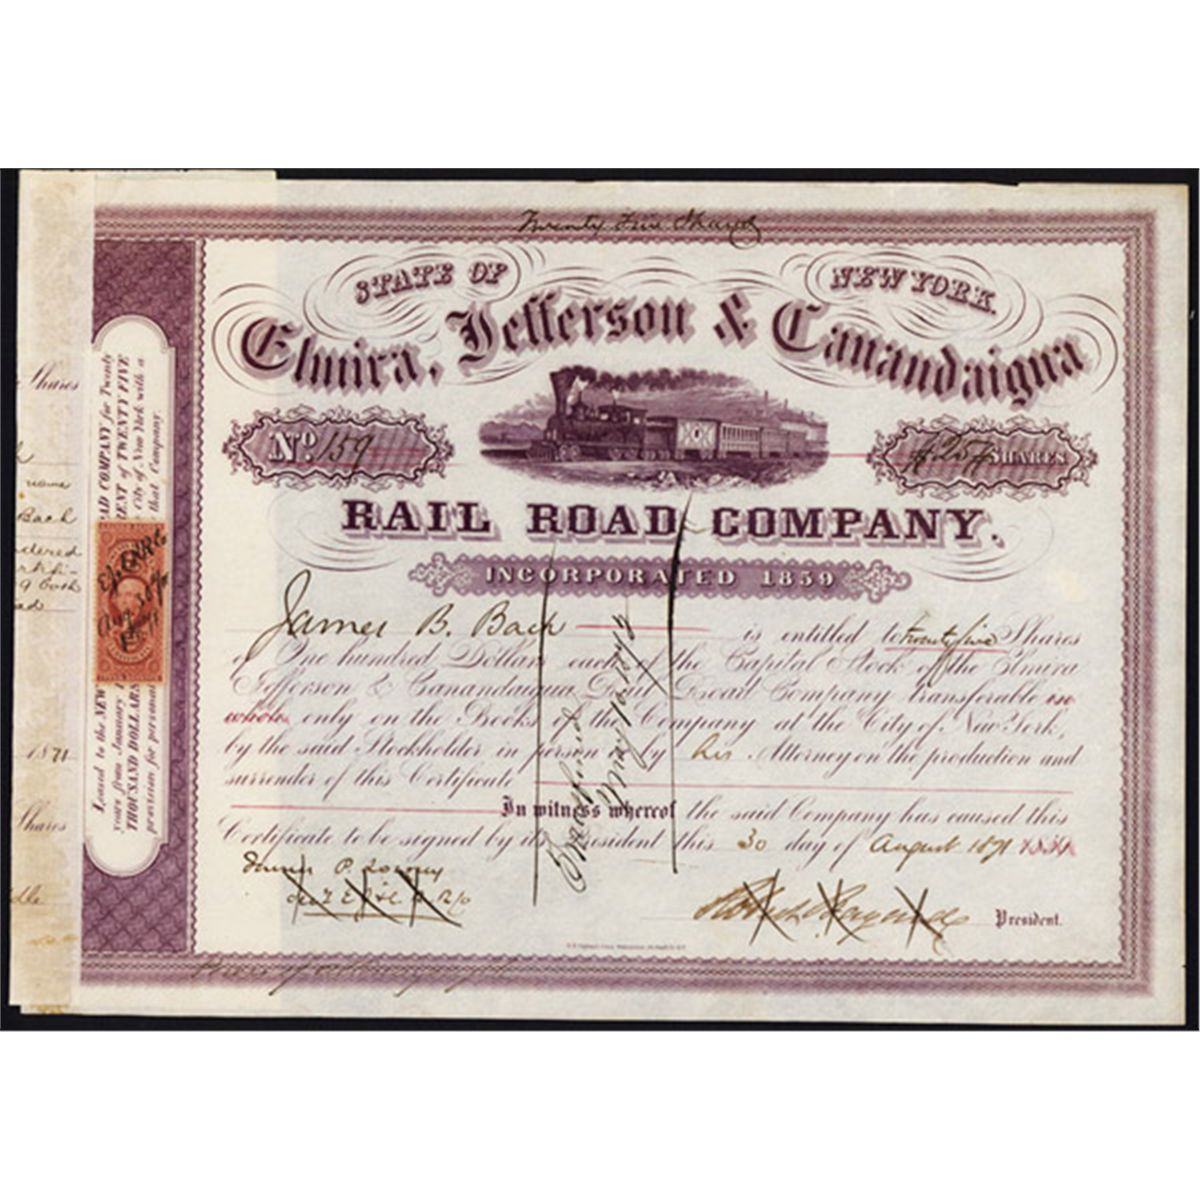 Twenty Five Shares
STATE OF NEW YORK.
Elmira, Jefferson & Canandaigua
No. 159
25 SHARES
RAIL ROAD COMPANY.
INCORPORATED 1859
James B. Bach is entitled to twenty five Shares
of One hundred Dollars each of the Capital Stock of the Elmira
Jefferson & Canandaigua Rail Road Company transferable in
whole only on the Books of the Company at the City of New York,
by the said Stockholder in person or by his Attorney on the production and
surrender of this Certificate
In witness whereof the said Company has caused this
Certificate to be signed by its President this 30 day of August 1871 185
President.
May 10. 1878
Leased to the NEW
AD COMPANY for Twenty
years from January
ENT of TWENTY FIVE
THOUSAND DOLLARS
City of New York with a
proviso for
that Company.
Shares
name
Bach
dered
Cash
1871
Shares